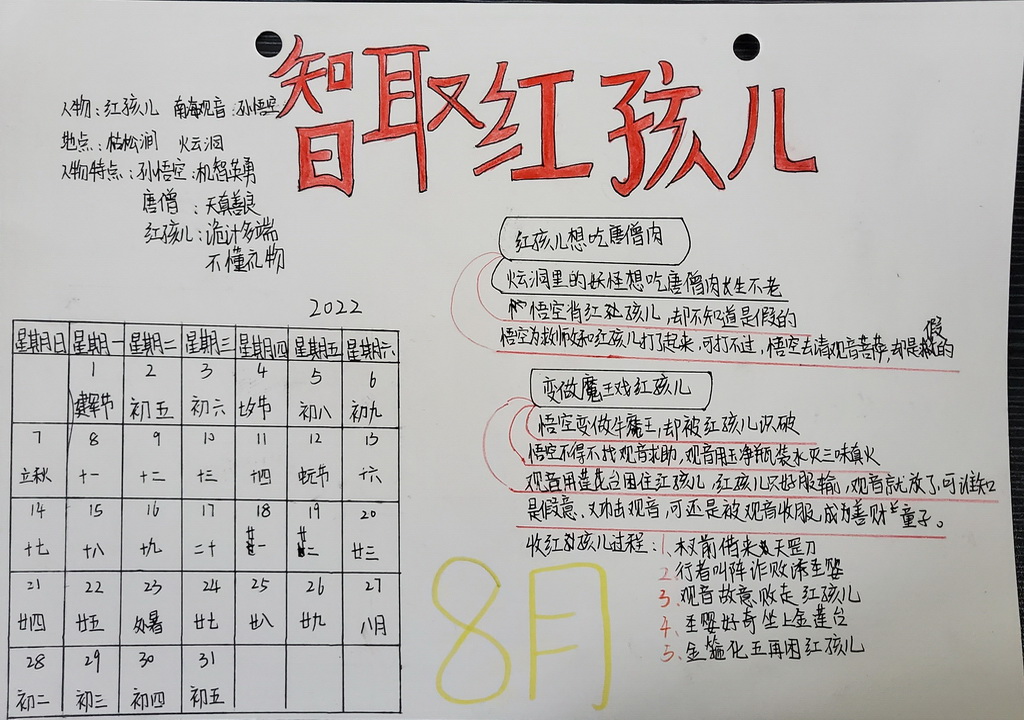 智取红孩儿
人物：红孩儿 南海观音：孙悟空
地点：枯松涧 火云洞
人物特点：孙悟空：机智英勇
唐僧：天真善良
红孩儿：诡计多端
不懂礼物
红孩儿想吃唐僧肉
火云洞里的妖怪想吃唐僧肉长生不老
悟空肖红孩儿，却不知道是假的
悟空为救师父和红孩儿打了起来，可打不过，悟空去请观音菩萨，却是假的
变做魔王戏红孩儿
悟空变做牛魔王，却被红孩儿识破
悟空不得不找观音求助，观音用玉净瓶装水灭三味真火
观音用莲花台困住红孩儿，红孩儿只好服输，观音就放了，可谁知
是假意，又功击观音，可还是被观音收服，成为善财童子。
收红孩儿过程：1、木叉前借来天罡刀
2、行者叫阵诈败诱圣婴
3、观音故意败走红孩儿
4、圣婴好奇坐上金莲台
5、金箍化五再困红孩儿
2022
星期日 星期一 星期二 星期三 星期四 星期五 星期六
1 2 3 4 5 6
建军节 初五 初六 七夕节 初八 初九
7 8 9 10 11 12 13
立秋 十一 十二 十三 十四 十六
14 15 16 17 18 19 20
十七 十八 十九 二十 廿一 廿二 廿三
21 22 23 24 25 26 27
廿四 廿五 处暑 廿七 廿八 廿九 八月
28 29 30 31
初二 初三 初四 初五
8月